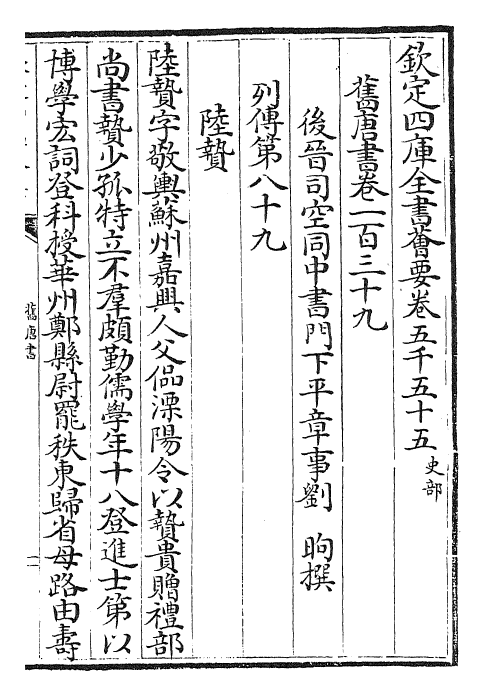 欽定四庫全書薈要卷五千五十五 史部
舊唐書卷一百三十九
後晉司空同中書門下平章事劉 昫撰
列傳第八十九
陸贄
陸贄字敬輿蘇州嘉興人父偘溧陽令以贄貴贈禮部
尚書贄少孤特立不羣頗勤儒學年十八登進士第以
博學宏詞登科授華州鄭縣尉罷秩東歸省母路由壽
舊唐書